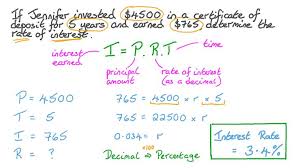 If Jennifer invested $4500 in a certificate of
deposit for 5 years and earned $765 determine the
rate of interest.
I = P.R.T
interest
earned
time
principal
amount
rate of interest
(as a decimal)
P = 4500
T = 5
I = 765
R = ?
765 = 4500 x r x 5
765 = 22500 x r
0.034 = r
x100
Decimal → Percentage
Interest Rate
= 3.4%